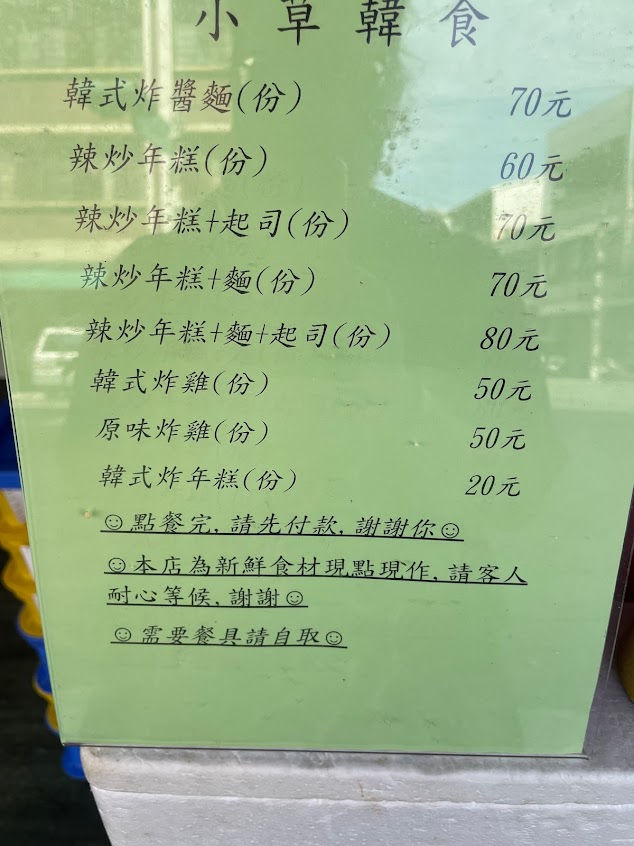 小草韓食
韓式炸醬麵(份) 70元
辣炒年糕(份) 60元
辣炒年糕+起司(份) 70元
辣炒年糕+麵(份) 70元
辣炒年糕+麵+起司(份) 80元
韓式炸雞(份) 50元
原味炸雞(份) 50元
韓式炸年糕(份) 20元
☺點餐完,請先付款,謝謝你☺
☺本店為新鮮食材現點現作,請客人
耐心等候,謝謝☺
☺需要餐具請自取☺